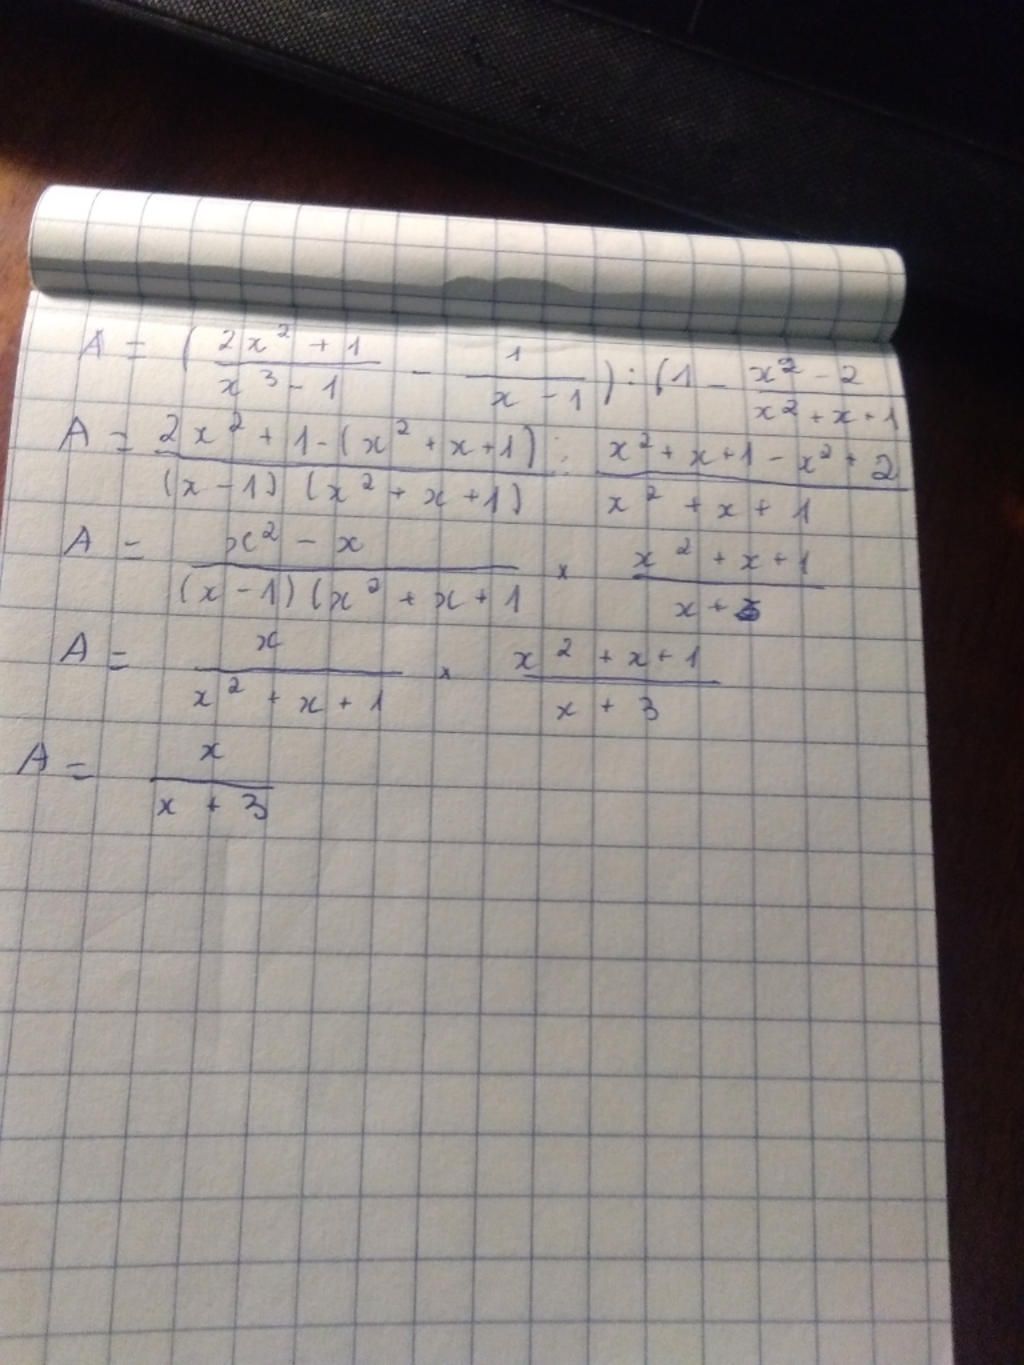 A = ( (2x² + 1)/(x³ - 1) - 1/(x - 1) ) : (1 - (x² - 2)/(x² + x + 1)
A = (2x² + 1 - (x² + x + 1))/((x - 1) (x² + x + 1)) : (x² + x + 1 - x² + 2)/(x² + x + 1)
A = (x² - x)/((x - 1) (x² + x + 1) × (x² + x + 1)/(x + 3)
A = x/(x² + x + 1) × (x² + x + 1)/(x + 3)
A = x/(x + 3)